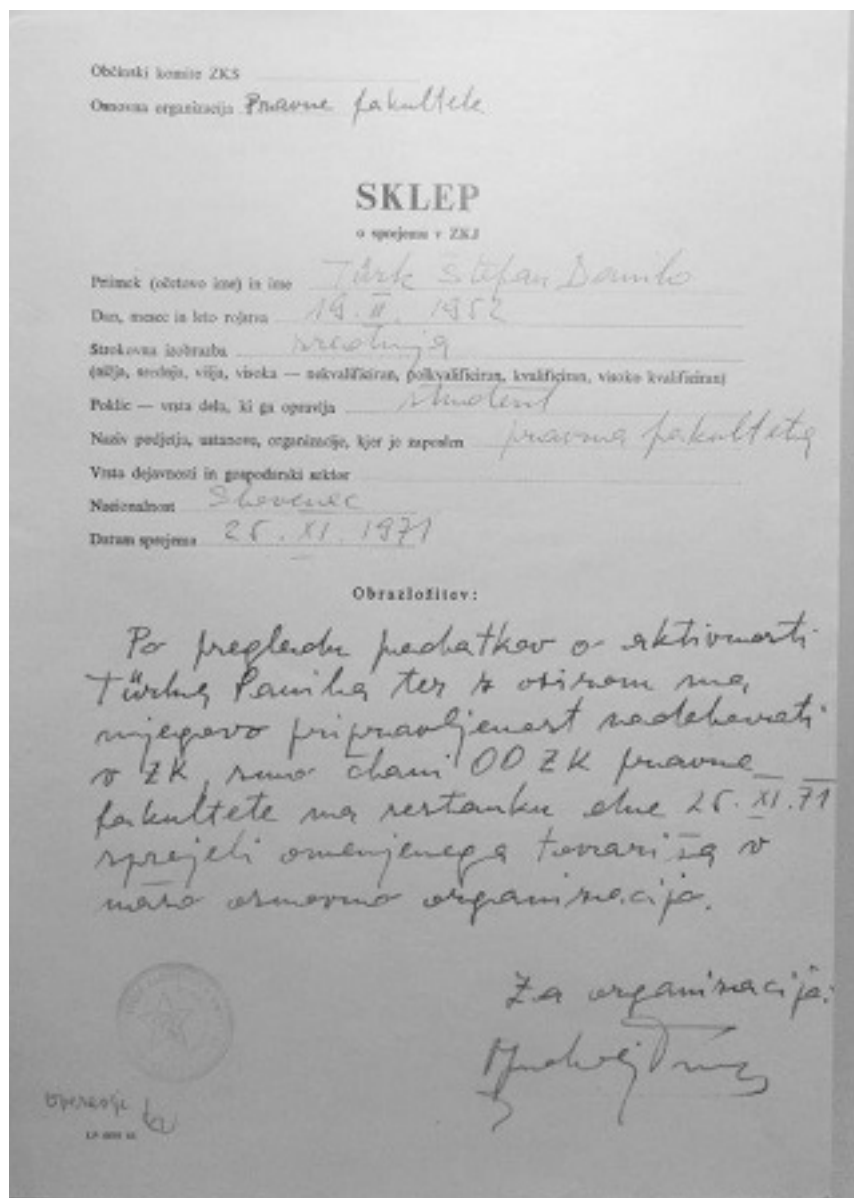 Občinski komite ZKS
Osnovna organizacija Pravne fakultete
SKLEP
o sprejemu v ZKJ
Priimek (očetovo ime) in ime Türk Štefan Danilo
Dan, mesec in leto rojstva 19. II. 1952
Strokovna izobrazba srednja
(nižja, srednja, višja, visoka — nekvalificiran, polkvalificiran, kvalificiran, visoko kvalificiran)
Poklic — vrsta dela, ki ga opravlja študent
Naziv podjetja, ustanove, organizacije, kjer je zaposlen pravna fakulteta
Vrsta dejavnosti in gospodarski sektor
Nacionalnost Slovenec
Datum sprejema 25. XI. 1971
Obrazložitev:
Po pregledu podatkov o aktivnosti
Türka Danila ter z ozirom na
njegovo pripravljenost sodelovati
v ZK, smo člani OO ZK pravne
fakultete na sestanku dne 25. XI. 71
sprejeli omenjenega tovariša v
našo osnovno organizacijo.
Za organizacijo: